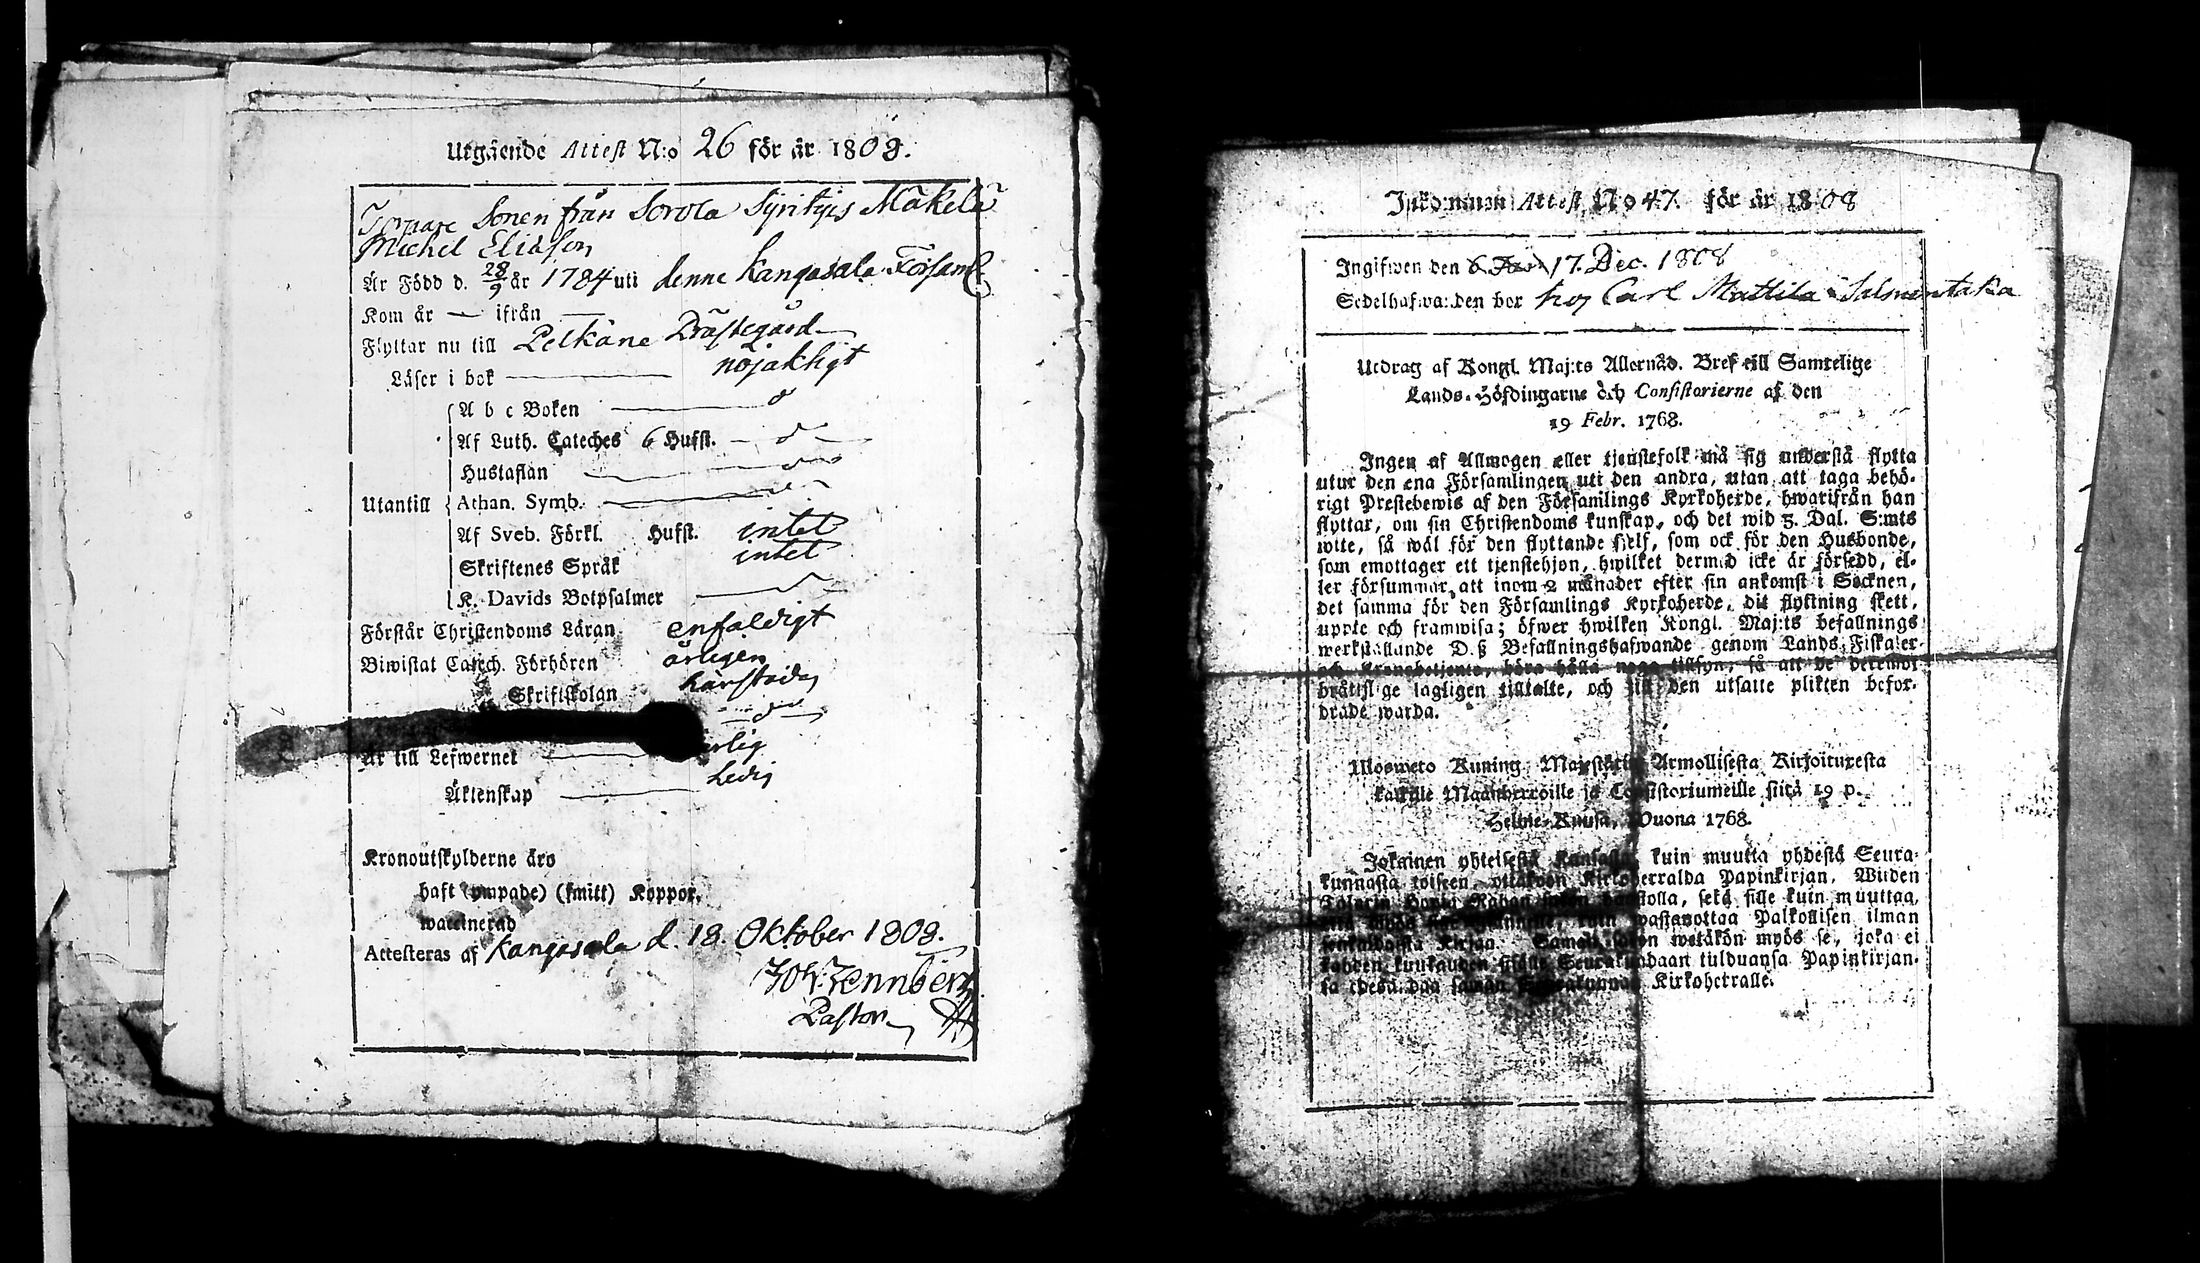 Utgående Attest N:o 26 för år 1808.
Sonen från Sorola Syrityis Mäkelä
Michel Eliasson
Är Född d. 28/9 år 1784 uti denne Kangasala Församl.
Kom år — ifrån —
Flyttar nu till Pelkäne Prästegård
Läser i bok nöjaktigt
A b c Boken
Af Luth. Cateches 6 Hufst.
Hustaflan
Utantill Athan. Symb.
Af Sveb. Förkl. Hufst. intet
Skriftenes Språk intet
K. Davids Botpsalmer
Förstår Christendoms Läran enfaldigt
Biwistat Catech. Förhören årligen
Skriftskolan
Är till Lefwernet
Äktenskap Ledig
Kronoutskylderne äro
haft (ympade) (smitt) Koppor.
waccinerad
Attesteras af Kangasala d. 18. Oktober 1808.
Joh. Zennberg
Pastor
Inkommen Attest No 47. för år 1808
Ingifwen den 17. Dec. 1808
Sedelhafwarden bor hos Carl Mattila Salmentaka
Utdrag af Kongl. Maj:ts Allernåd. Bref till Samtelige
Lands-Höfdingarne och Consistorierne af den
19 Febr. 1768.
Ingen af Allmogen eller tjenstefolk må sig understå flytta
utur den ena Församlingen uti den andra, utan att taga behö-
rigt Prestebewis af den Församlings Kyrkoherde, hwarifrån han
flyttar, om sin Christendoms kunskap, och det wid 3. Dal. S:mts
wite, så wäl för den flyttande sjelf, som ock för den Husbonde,
som emottager ett tjenstehjon, hwilket dermed icke är försedd, el-
ler försummar att inom 2 månader efter sin ankomst i Socknen,
det samma för den Församlings Kyrkoherde, dit flyttning skett,
uppte och framwisa; öfwer hwilken Kongl. Maj:ts befallnings
werkställande D. ß Befallningshafwande genom Lands-Fiskaler
och Kronobetjente, böra hålla noga tillsyn, så att de deremot
bråttslige lagligen tilltalte, och till den utsatte plikten befor-
drade warda.
Ulosweto Kuning. Majestätin Armollisesta Kirjoituxesta
kaikille Maanherroille ja Consistoriumeille siitä 19 p.
Helme-Kuusa, Wuona 1768.
Jokainen yhteisestä Kansasta, kuin muutta yhdestä Seura-
kunnasta toiseen, ottakoon Kirkoherralda Papinkirjan. Wiiden
Talarin Hopia Rahan sakon uhastolla, sekä sille kuin muuttaa,
wastanottaa Palkollisen ilman
Kirjaa. Saman sakon wetäkön myös se, joka ei
kahden kuukauden sisälle Seurakundaan tulduansa Papinkirjan-
sa Kirkoherralle.